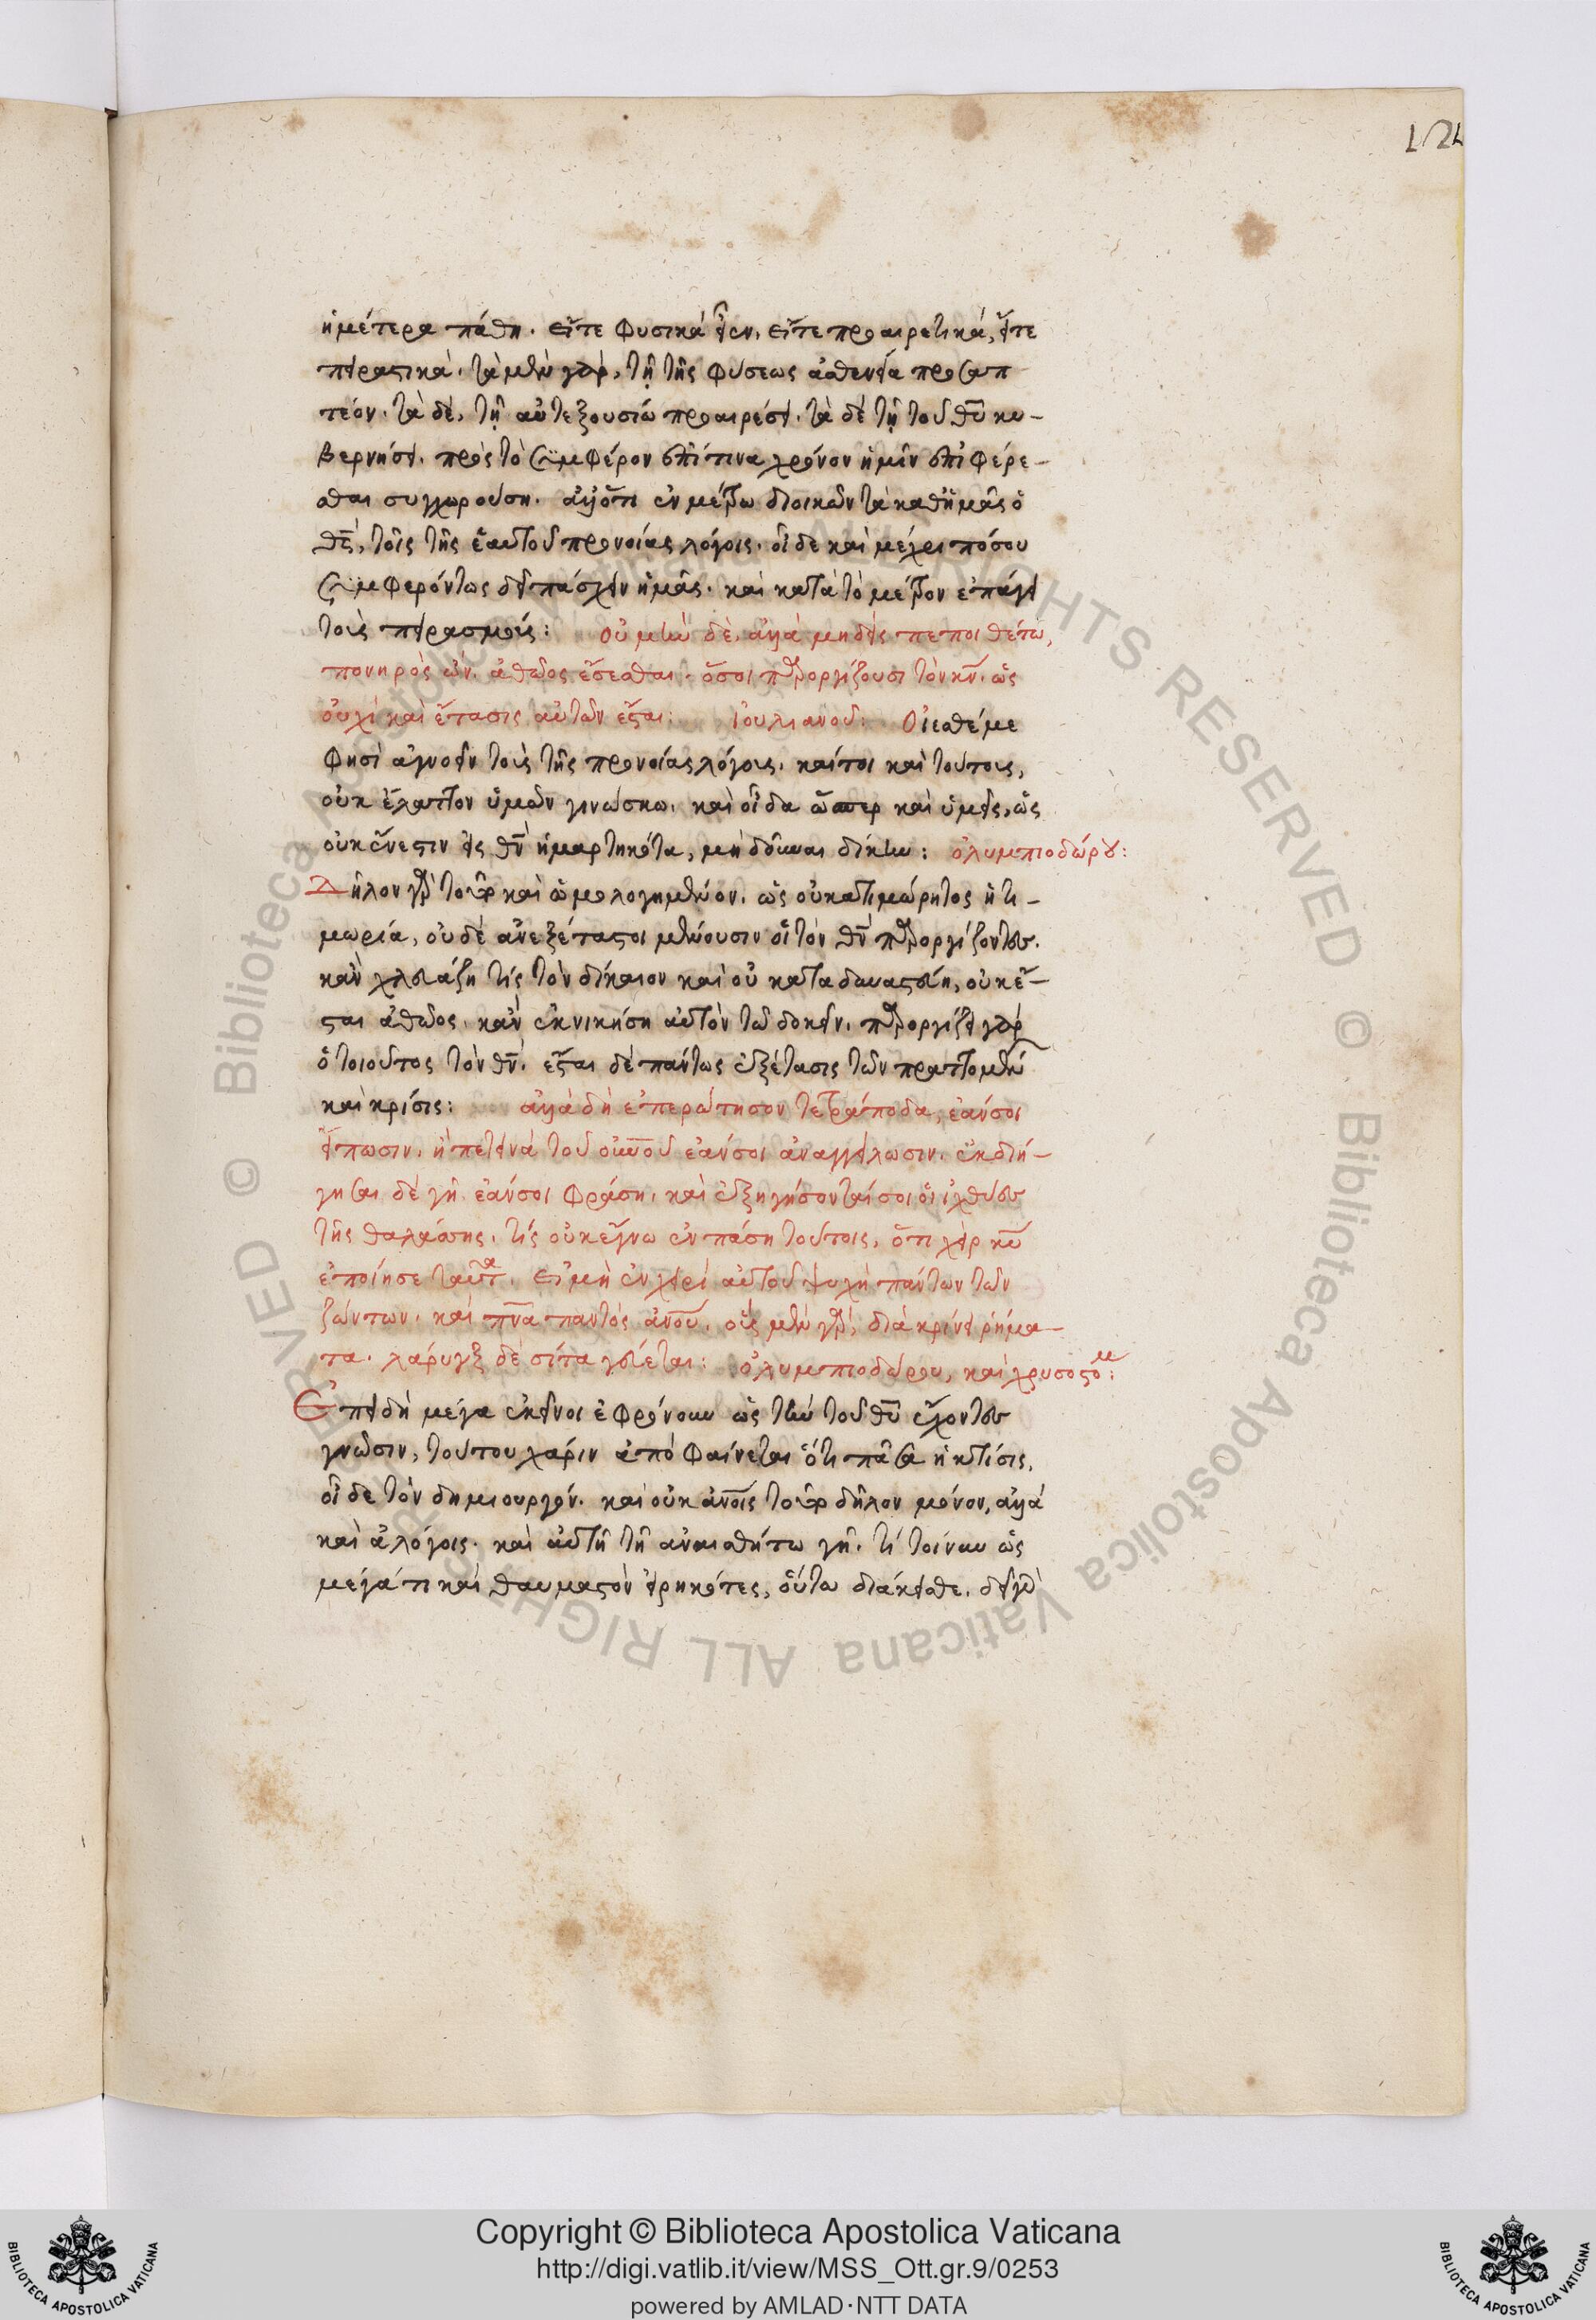 124
ἡμέτερα πάθη. εἴτε φυσικὰ εἶεν, εἴτε προαιρετικὰ, εἴτε
πειραστικά. τὰ μὲν γὰρ, τῆ τῆς φύσεως ἀσθενεία προσαπ
τέον. τὰ δὲ, τῆ αὐτεξουσίω προαιρέσει. τὰ δὲ τῆ τοῦ θυ κυ-
βερνήσει. πρὸς τὸ συμφέρον ἐπί τινα χρόνον ἡμῖν ἐπιφέρε-
σθαι συγχωρούση. ἀλλ' ὅτι ἐν μέτρω διοικῶν τὰ καθ' ἡμᾶς ὁ
θς, τοῖς τῆς ἑαυτοῦ προνοίας λόγοις. οἶδε καὶ μέχρι πόσου
συμφερόντως δεῖ πάσχειν ἡμᾶς. καὶ κατὰ τὸ μέτρον ἐπάγει
τοὺς πειρασμούς: οὐ μὴν δὲ, ἀλλὰ μηδεὶς πεποιθέτω,
πονηρὸς ὢν, ἀθῶος ἔσεσθαι. ὅσοι παροργίζουσι τὸν κν. ὡς
οὐχὶ καὶ ἔτασις αὐτῶν ἔσται: ἰουλιανοῦ: Οἴεσθέ με
φησὶ ἀγνοεῖν τοὺς τῆς προνοίας λόγους. καίτοι καὶ τούτους,
οὐκ ἔλαττον ὑμῶν γινώσκω. καὶ οἶδα ὥσπερ καὶ ὑμεῖς, ὡς
οὐκ ἔνεστιν εἰς θν ἡμαρτηκότα, μὴ δοῦναι δίκην: ὀλυμπιοδώρου:
Δῆλον γὰρ τοῦτο καὶ ὡμολογημένον. ὡς οὐκ ἀτιμώρητος ἡ τι-
μωρία, οὐδὲ ἀνεξέταστοι μένουσιν οἱ τὸν θν παροργίζοντες.
κἂν χλευάζη τίς τὸν δίκαιον καὶ οὐ καταδυναστεύη, οὐκ ἔ-
σται ἀθῶος. κἂν ἐκνικήση αὐτὸν τῶ δοκεῖν. παροργίζει γὰρ
ὁ τοιοῦτος τὸν θν. ἔσται δὲ πάντως ἐξέτασις τῶν πραττομένων
καὶ κρίσις: ἀλλὰ δὴ ἐπερώτησον τετράποδα, ἐάν σοι
εἴπωσιν. ἢ πετεινὰ τοῦ οὐνοῦ ἐάν σοι ἀναγγείλωσιν. ἐκδιή-
γησαι δὲ γῆ ἐάν σοι φράση. καὶ ἐξηγήσονταί σοι οἱ ἰχθύες
τῆς θαλάσσης. τίς οὐκ ἔγνω ἐν πάση τούτοις, ὅτι χεὶρ κυ
ἐποίησε ταῦτα. εἰ μὴ ἐν χειρὶ αὐτοῦ ψυχὴ πάντων τῶν
ζώντων. καὶ πνα παντὸς ἀνου. οὖς μὲν γὰρ, διακρίνει ῥήμα-
τα. λάρυγξ δὲ σίτα γεύεται: ὀλυμπιοδώρου, καὶ χρυσοστόμ:
Ἐπειδὴ μέγα ἐκεῖνοι ἐφρόνουν ὡς τὴν τοῦ θυ ἔχοντες
γνῶσιν, τούτου χάριν ἀποφαίνεται ὅτι πᾶσα ἡ κτίσις,
οἶδε τὸν δημιουργόν. καὶ οὐκ ἀνοις τοῦτο δῆλον μόνον, ἀλλὰ
καὶ ἀλόγοις. καὶ αὐτῆ τῆ ἀναισθήτω γῆ. τί τοίνυν ὡς
μέγά τι καὶ θαυμαστὸν εἰρηκότες, οὕτω διάκεισθε.
Copyright © Biblioteca Apostolica Vaticana
http://digi.vatlib.it/view/MSS_Ott.gr.9/0253
powered by AMLAD·NTT DATA